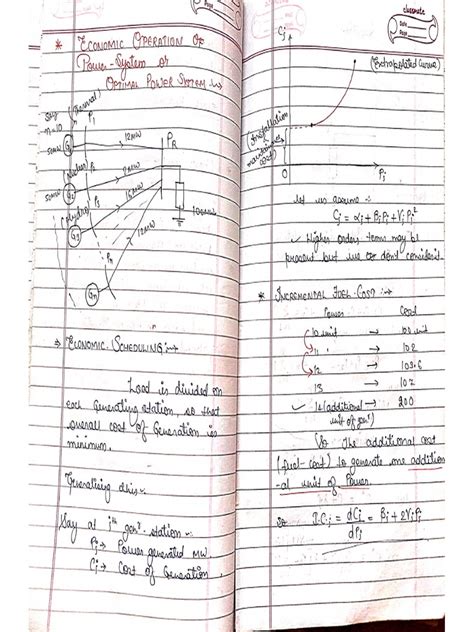 * ECONOMIC OPERATION OF
Power-System or
OPTIMAL POWER SYSTEM :→
Say
n=10
(Thermal)
P1
50MW
G1
12MW
PR
(Nuclear)
P2
50MW
G2
7MW
(Hydro)
P3
15MW
G3
12MW
100MW
Pn
Gn
⇒ ECONOMIC SCHEDULING :→
Load is divided on
each Generating station, so that
overall cost of Generation is
minimum.
Generalising this:-
Say at ith genr. station :-
Pi → Power generated MW.
Ci → Cost of Generation
classmate
Date
Page
Ci
(Extrapolated Curve)
(Installation
&
maintainance
cost)
0
Pi
Let us assume :-
Ci = αi + BiPi + ViPi²
✓ Higher orders terms may be
present but we don't consider it.
* INCREMENTAL FUEL COST :→
Power Cost
10 unit → 100 unit
11 → 102
12 → 103.6
13 → 107
✓ 14 (additional → 200
unit of genr)
So The additional cost
(fuel-cost) to generate one addition
-al unit of Power.
is I.Ci = dCi/dPi = Bi + 2ViPi